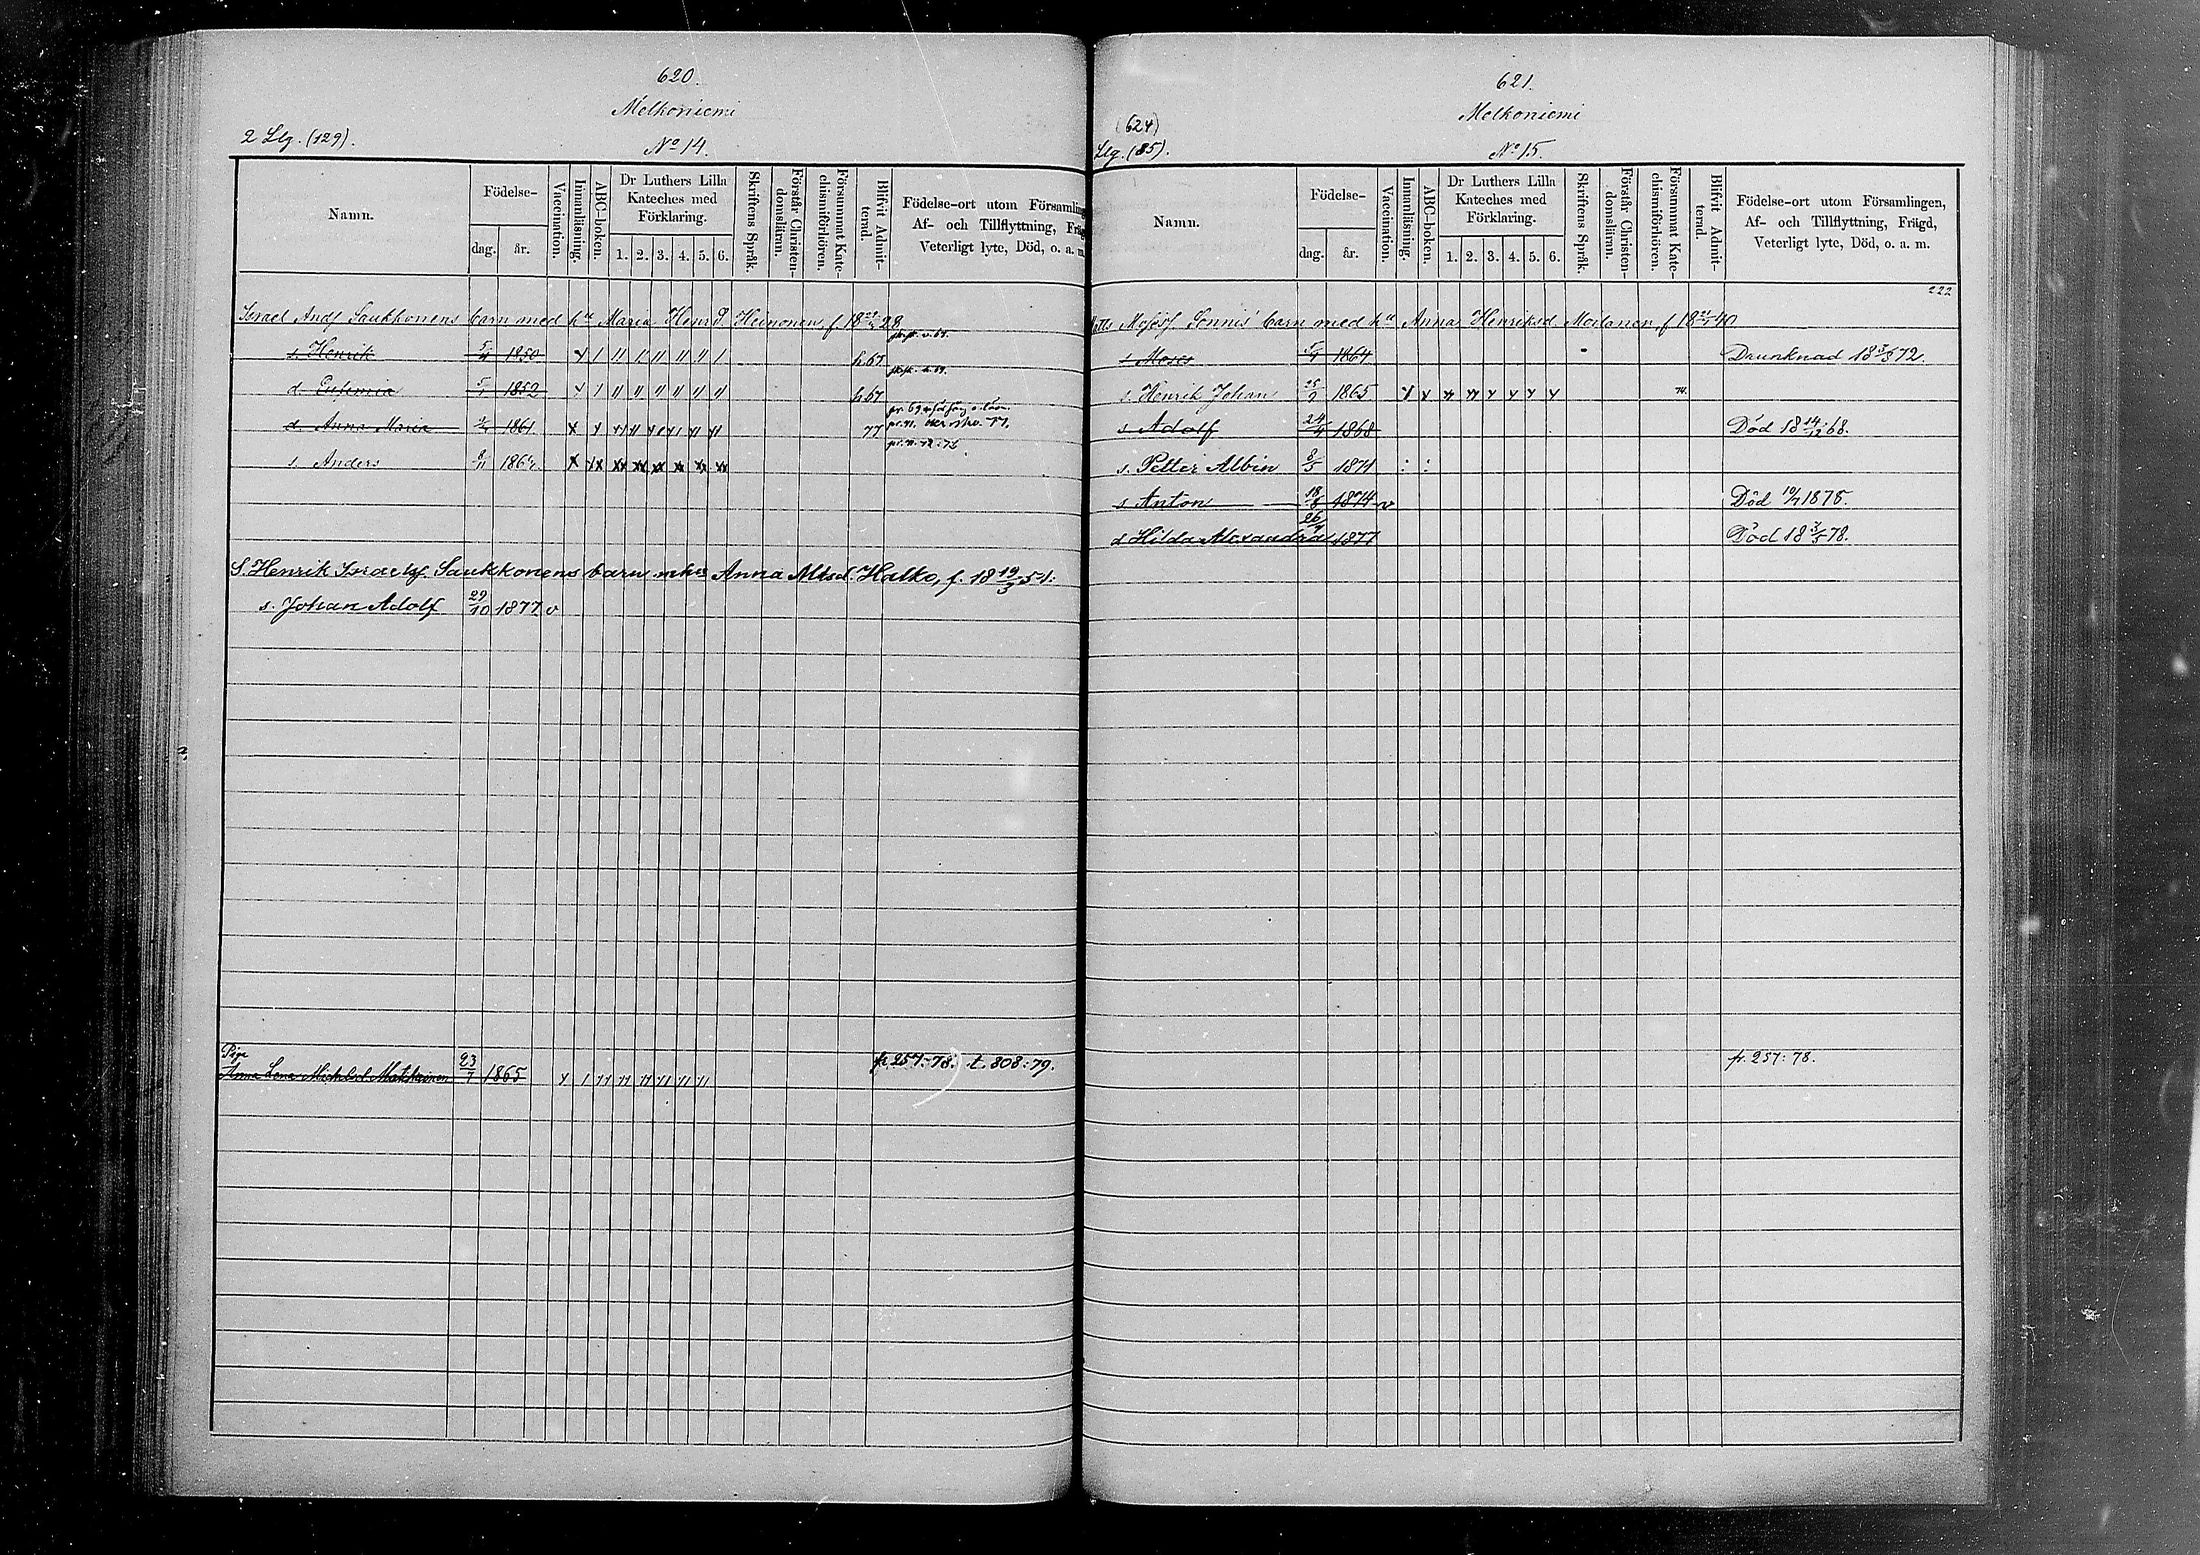 620.
Melkoniemi
2 Llg. (129).
No 14.
Namn.
Födelse-
dag. år.
Vaccination.
Innanläsning.
ABC-boken.
Dr Luthers Lilla Kateches med Förklaring.
1. 2. 3. 4. 5. 6.
Skriftens Språk.
Förstår Christendomsläran.
Försummat Katechismiförhören.
Blifvit Admittend.
Födelse-ort utom Församling
Af- och Tillflyttning, Fräg
Veterligt lyte, Död, o. a. m
Israel Andsf Saukkonens barn med hu Maria Henr.d Heinonen, f 18 28
s. Henrik 5/4 1850 h.67
d. Eufemia 5/1 1852 h.67
d. Anna Maria 1861 77
s. Anders 8/11 1864
S. Henrik Israelsf. Saukkonens barn mhu Anna Mtsd. Halko, f. 18 19/3 51:
s. Johan Adolf 29/10 1877 v
Pige
Anna Lena Michelsd Matikainen 23/7 1865 fr 257:78. t. 808:79.
621.
Melkoniemi
(624)
Llg. (85).
No 15.
Namn.
Födelse-
dag. år.
Vaccination.
Innanläsning.
ABC-boken.
Dr Luthers Lilla Kateches med Förklaring.
1. 2. 3. 4. 5. 6.
Skriftens Språk.
Förstår Christendomsläran.
Försummat Katechismiförhören.
Blifvit Admittend.
Födelse-ort utom Församlingen,
Af- och Tillflyttning, Frägd,
Veterligt lyte, Död, o. a. m.
222
Matts Mosesf. Sennis' barn med hu Anna Henriksd Moilanen, f 18 40
s Moses 5/9 1864 Drunknad 18 3/5 72.
s. Henrik Johan 25/9 1865 74.
s Adolf 24/4 1868 Död 18 14/12 68.
s. Petter Albin 8/5 1871
s. Anton 18/8 1874 v Död 10/7 1878.
d Hilda Alexandra 26/9 1877 Död 18 3/5 78.
fr. 257:78.